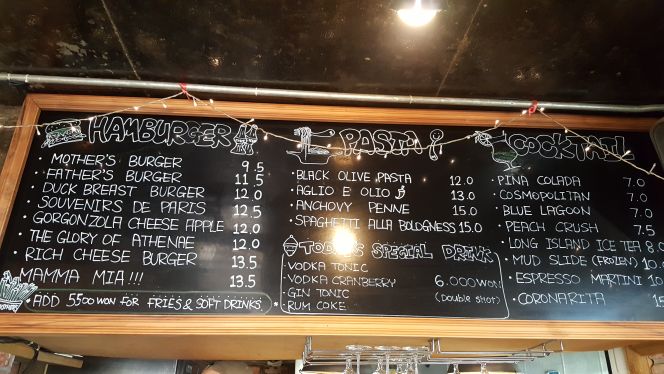 HAMBURGER
· MOTHER'S BURGER 9.5
· FATHER'S BURGER 11.5
· DUCK BREAST BURGER 12.0
· SOUVENIRS DE PARIS 12.5
· GORGONZOLA CHEESE APPLE 12.0
· THE GLORY OF ATHENAE 12.0
· RICH CHEESE BURGER 13.5
MAMMA MIA!!! 13.5
· ADD 5500 WON FOR FRIES & SOFT DRINKS.
PASTA
· BLACK OLIVE PASTA 12.0
· AGLIO E OLIO 13.0
· ANCHOVY PENNE 15.0
· SPAGHETTI ALLA BOLOGNESS 15.0
TODAY'S SPECIAL DRINK
VODKA TONIC
VODKA CRANBERRY 6.000 WON
GIN TONIC (Double shot)
* RUM COKE
COCKTAIL
· PINA COLADA 7.0
· COSMOPOLITAN 7.0
· BLUE LAGOON 7.0
· PEACH CRUSH 7.5
· LONG ISLAND ICE TEA 8.
· MUD SLIDE (FROZEN) 10.
· ESPRESSO MARTINI 10
· CORONARITA